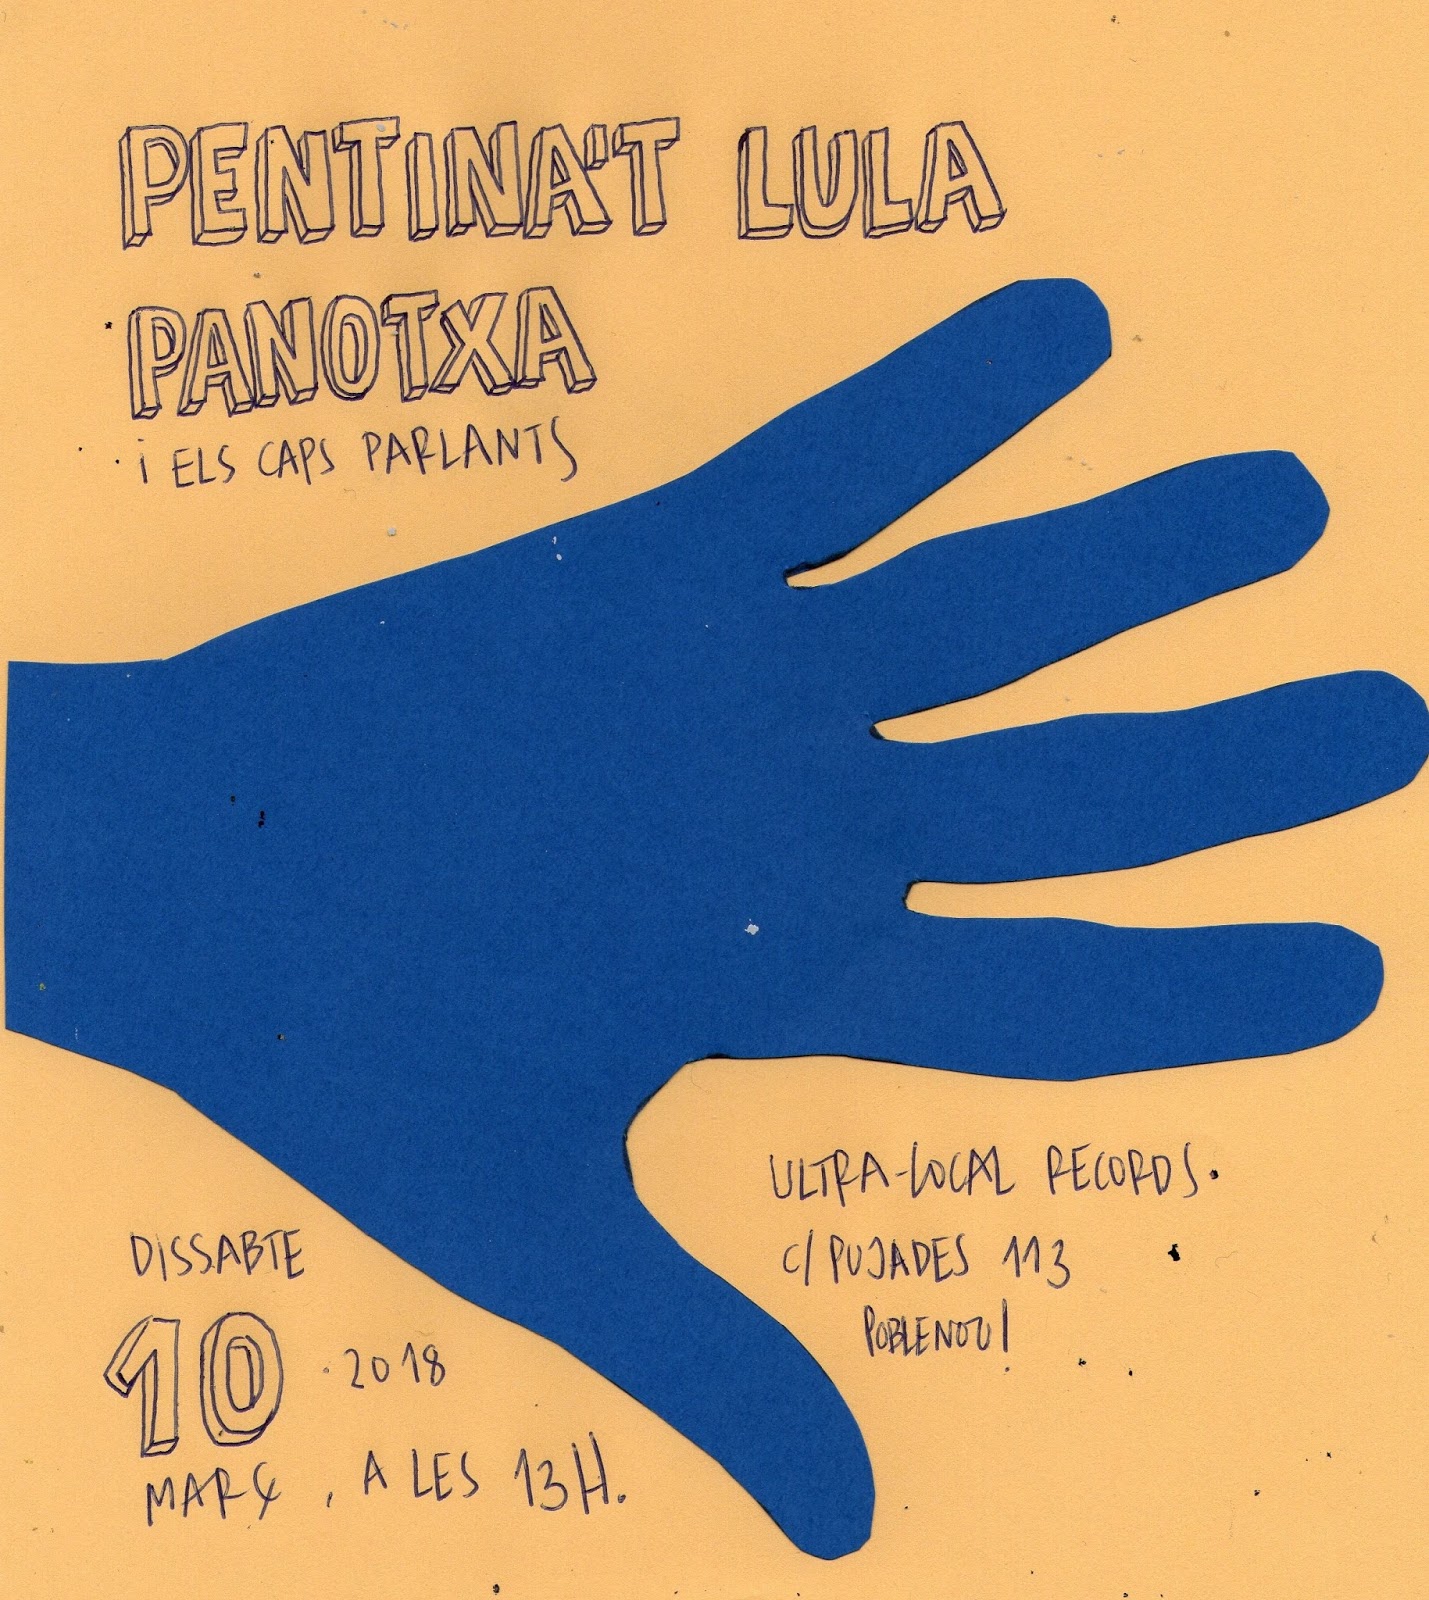 PENTINA'T LULA
PANOTXA
i ELS CAPS PARLANTS
ULTRA-LOCAL RECORDS.
C/PUJADES 113
POBLENOU!
DISSABTE
10 . 2018
MARÇ, A LES 13H.